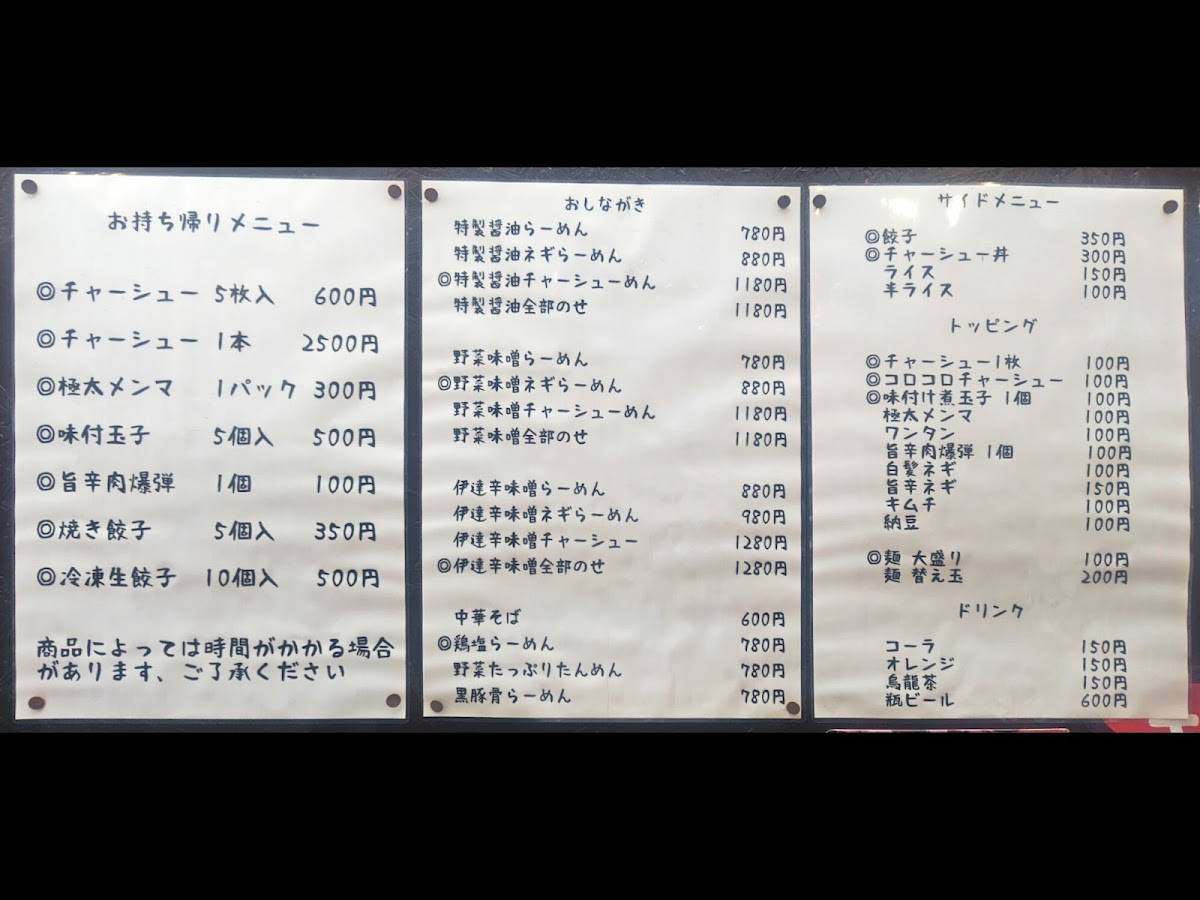 お持ち帰りメニュー
◎チャーシュー 5枚入 600円
◎チャーシュー 1本 2500円
◎極太メンマ 1パック 300円
◎味付玉子 5個入 500円
◎旨辛肉爆弾 1個 100円
◎焼き餃子 5個入 350円
◎冷凍生餃子 10個入 500円
商品によっては時間がかかる場合
があります、ご了承ください
おしながき
特製醤油らーめん 780円
特製醤油ネギらーめん 880円
◎特製醤油チャーシューめん 1180円
特製醤油全部のせ 1180円
野菜味噌らーめん 780円
◎野菜味噌ネギらーめん 880円
野菜味噌チャーシューめん 1180円
野菜味噌全部のせ 1180円
伊達辛味噌らーめん 880円
伊達辛味噌ネギらーめん 980円
伊達辛味噌チャーシュー 1280円
◎伊達辛味噌全部のせ 1280円
中華そば 600円
◎鶏塩らーめん 780円
野菜たっぷりたんめん 780円
黒豚骨らーめん 780円
サイドメニュー
◎餃子 350円
◎チャーシュー丼 300円
ライス 150円
半ライス 100円
トッピング
◎チャーシュー1枚 100円
◎コロコロチャーシュー 100円
◎味付け煮玉子 1個 100円
極太メンマ 100円
ワンタン 100円
旨辛肉爆弾 1個 100円
白髪ネギ 100円
旨辛ネギ 150円
キムチ 100円
納豆 100円
◎麺 大盛り 100円
麺 替え玉 200円
ドリンク
コーラ 150円
オレンジ 150円
烏龍茶 150円
瓶ビール 600円